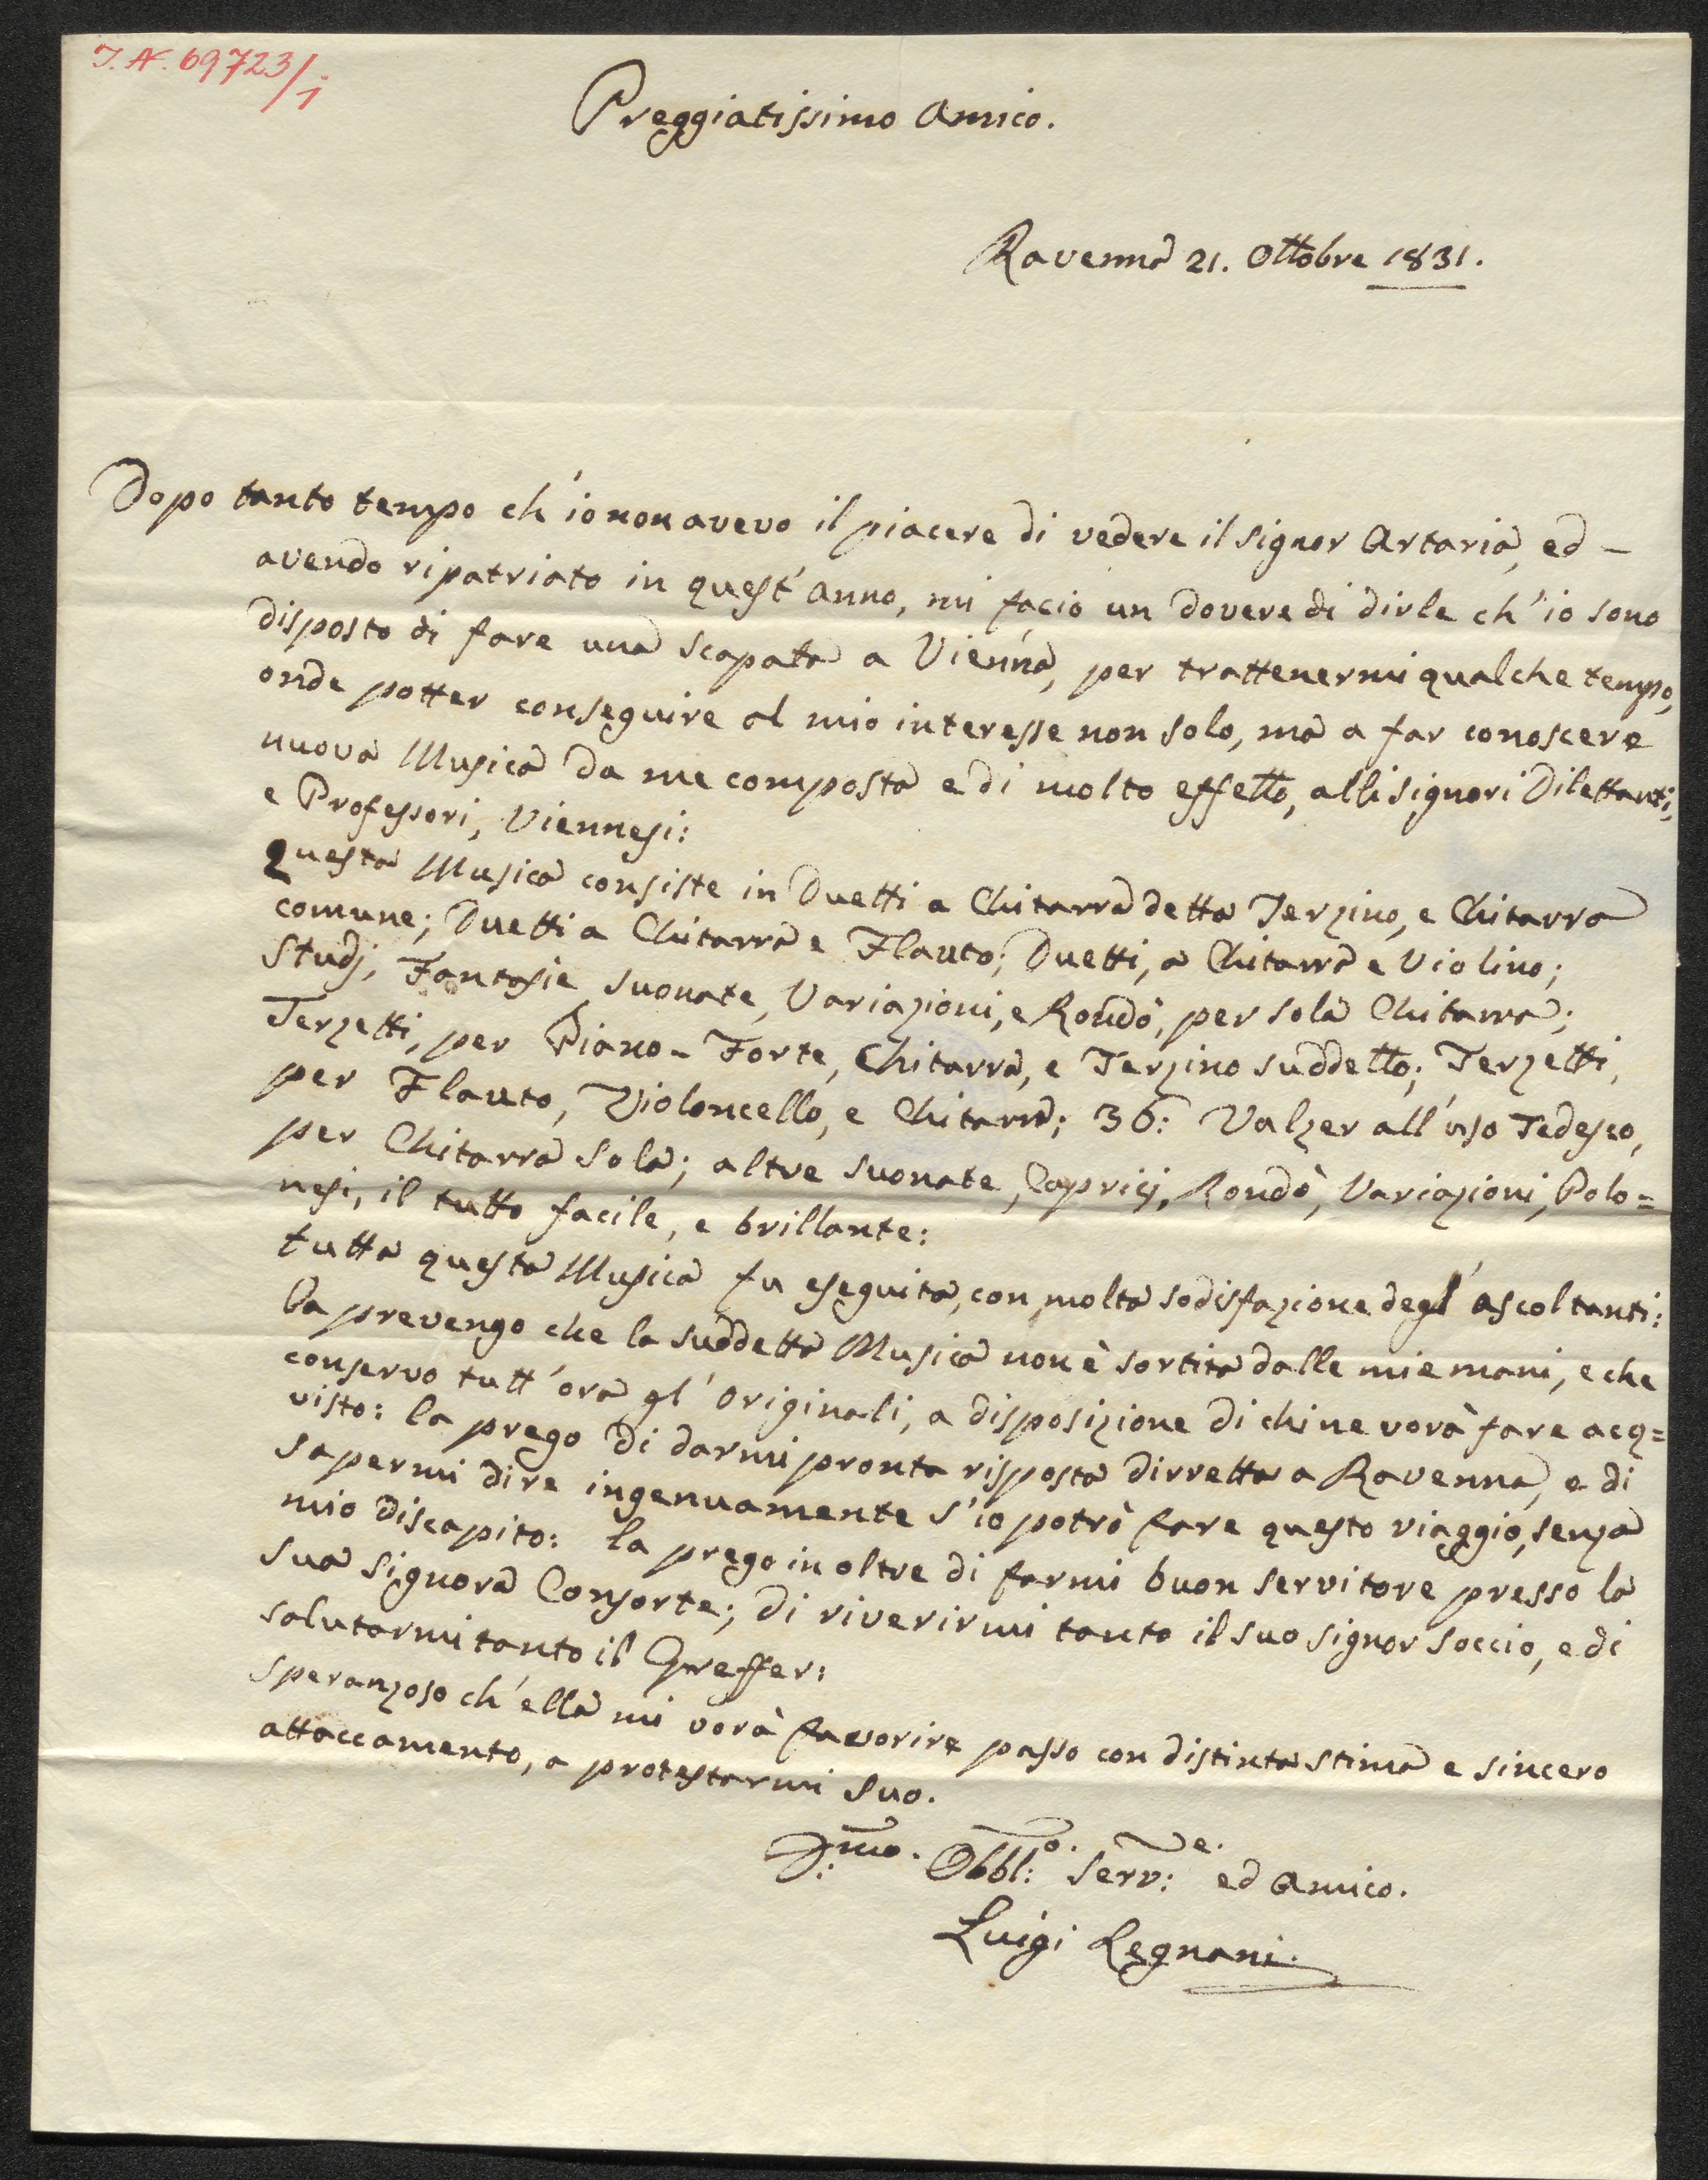 J. N. 69723/1
Preggiatissimo Amico.
Ravenna 21. Ottobre 1831.
Dopo tanto tempo ch'io non avevo il piacere di vedere il signor Artaria, ed -
avendo ripatriato in quest'anno, mi facio un dovere di dirle ch'io sono
disposto di fare una scapata a Vienna, per trattenermi qualche tempo,
onde potter conseguire al mio interesse non solo, ma a far conoscere
nuova Musica da me composta e di molto effetto, alli signori Dilettanti,
e Professori, Viennesi:
Questa Musica consiste in Duetti a Chitarra detta Terzino, e Chitarra
comune; Duetti a Chitarra e Flauto; Duetti, a Chitarra e Violino;
Studj, Fantasie, suonate, Variazioni, e Rondò, per sola Chitarra;
Terzetti, per Piano-Forte, Chitarra, e Terzino suddetto; Terzetti,
per Flauto, Violoncello, e Chitarra; 36: Valzer all'uso Tedesco,
per Chitarra sola; altre suonate, Capricj, Rondò, Variazioni, Polo=
nesi, il tutto facile, e brillante:
tutta questa Musica fu eseguita, con molta sodisfazione degl'ascoltanti:
La prevengo che la suddetta Musica non è sortita dalle mie mani, e che
conservo tutt'ora gl'originali, a disposizione di chi ne vorà fare acq=
visto: la prego di darmi pronta risposta dirretta a Ravenna, e di
sapermi dire ingenuamente s'io potrò fare questo viaggio, senza
mio discapito: la prego inoltre di farmi buon servitore presso la
sua signora Consorte; di riverirmi tanto il suo signor soccio, e di
salutarmi tanto il Greffer:
speranzoso ch'ella mi vorà favorire passo con distinta stima e sincero
attaccamento, a protestarmi suo.
D:mo. Obbl:o. Serv:e. ed Amico.
Luigi Legnani.